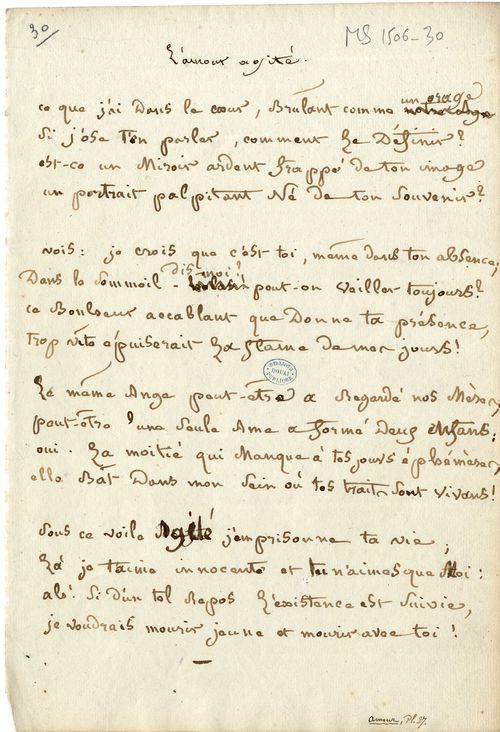 30
MS 1506-30
L'amour agité.
ce que j'ai Dans le cœur, Brûlant comme un orage
Si j'ose T'en parler, comment Le Définir?
est-ce un Miroir ardent frappé de ton image
un portrait palpitant Né de ton Souvenir?
vois: je crois que c'est toi, même dans ton absence;
Dans le Sommeil - dis-moi? peut-on Veiller toujours?
ce Bonheur accablant que Donne ta présence,
trop vîte épuiserait La flame de mes jours!
BIBLIOTH. DOUAI PUBLIQUE
Le même Ange peut-être a Regardé nos Mères,
peut-être une Seule Ame a formé Deux Enfans;
oui. La moitié qui Manque à tes jours éphémères,
elle Bât Dans mon Sein où tes traits Sont vivans!
Sous ce voile Agité j'emprisonne ta vie;
Là je t'aime innocente et tu n'aimes que Moi:
ah! Si d'un tel Repos L'existence est Suivie,
je voudrais mourir jeune et mourir avec toi!
amour, Pl. 37.